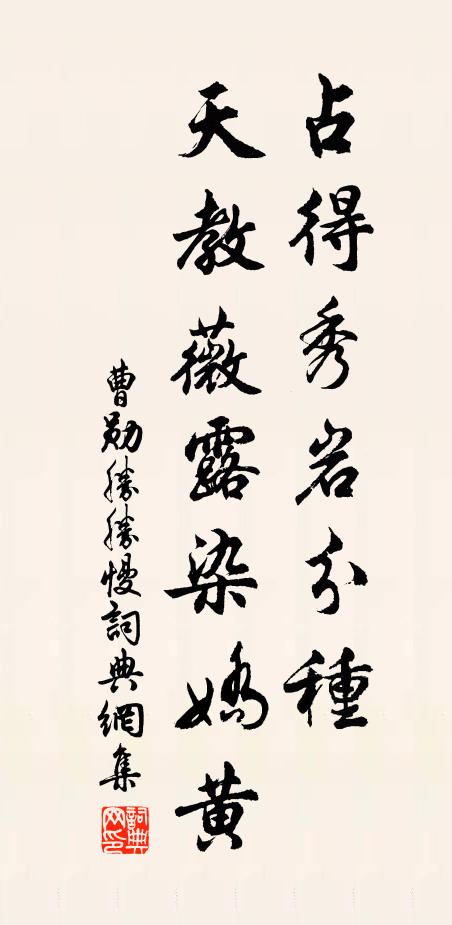 占得秀岩分種
天教薇露染嬌黃
曹勛勝勝慢詞典網集
詞典網印